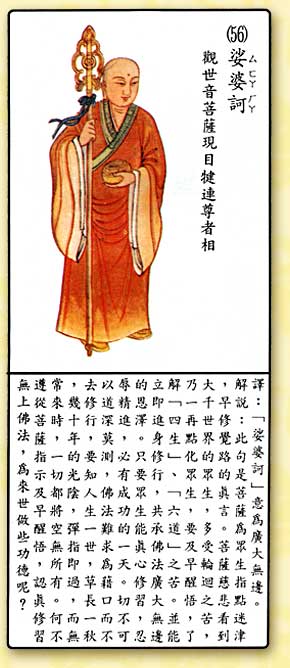 (56)娑婆訶
ㄙㄆㄛㄏㄜ
觀世音菩薩現目犍連尊者相
譯：「娑婆訶」意為廣大無邊。
解說：此句是菩薩為眾生指點迷津
，早修覺路的真言。菩薩慈悲看到
大千世界的眾生，多受輪迴之苦，
乃一再點化眾生，要及早醒悟，了
解「四生」、「六道」之苦。並能
立即進身修行，共承佛法廣大無邊
的恩澤。只要眾生能真心修習，忍
辱精進，必有成功的一天。切不可
以道深莫測，佛法難求為藉口而不
去修行，要知人生一世，草長一秋
，幾十年的光陰，彈指即過，而無
常來時，一切都將空無所有。何不
遵從菩薩指示及早醒悟，認真修習
無上佛法，為來世做些功德呢？